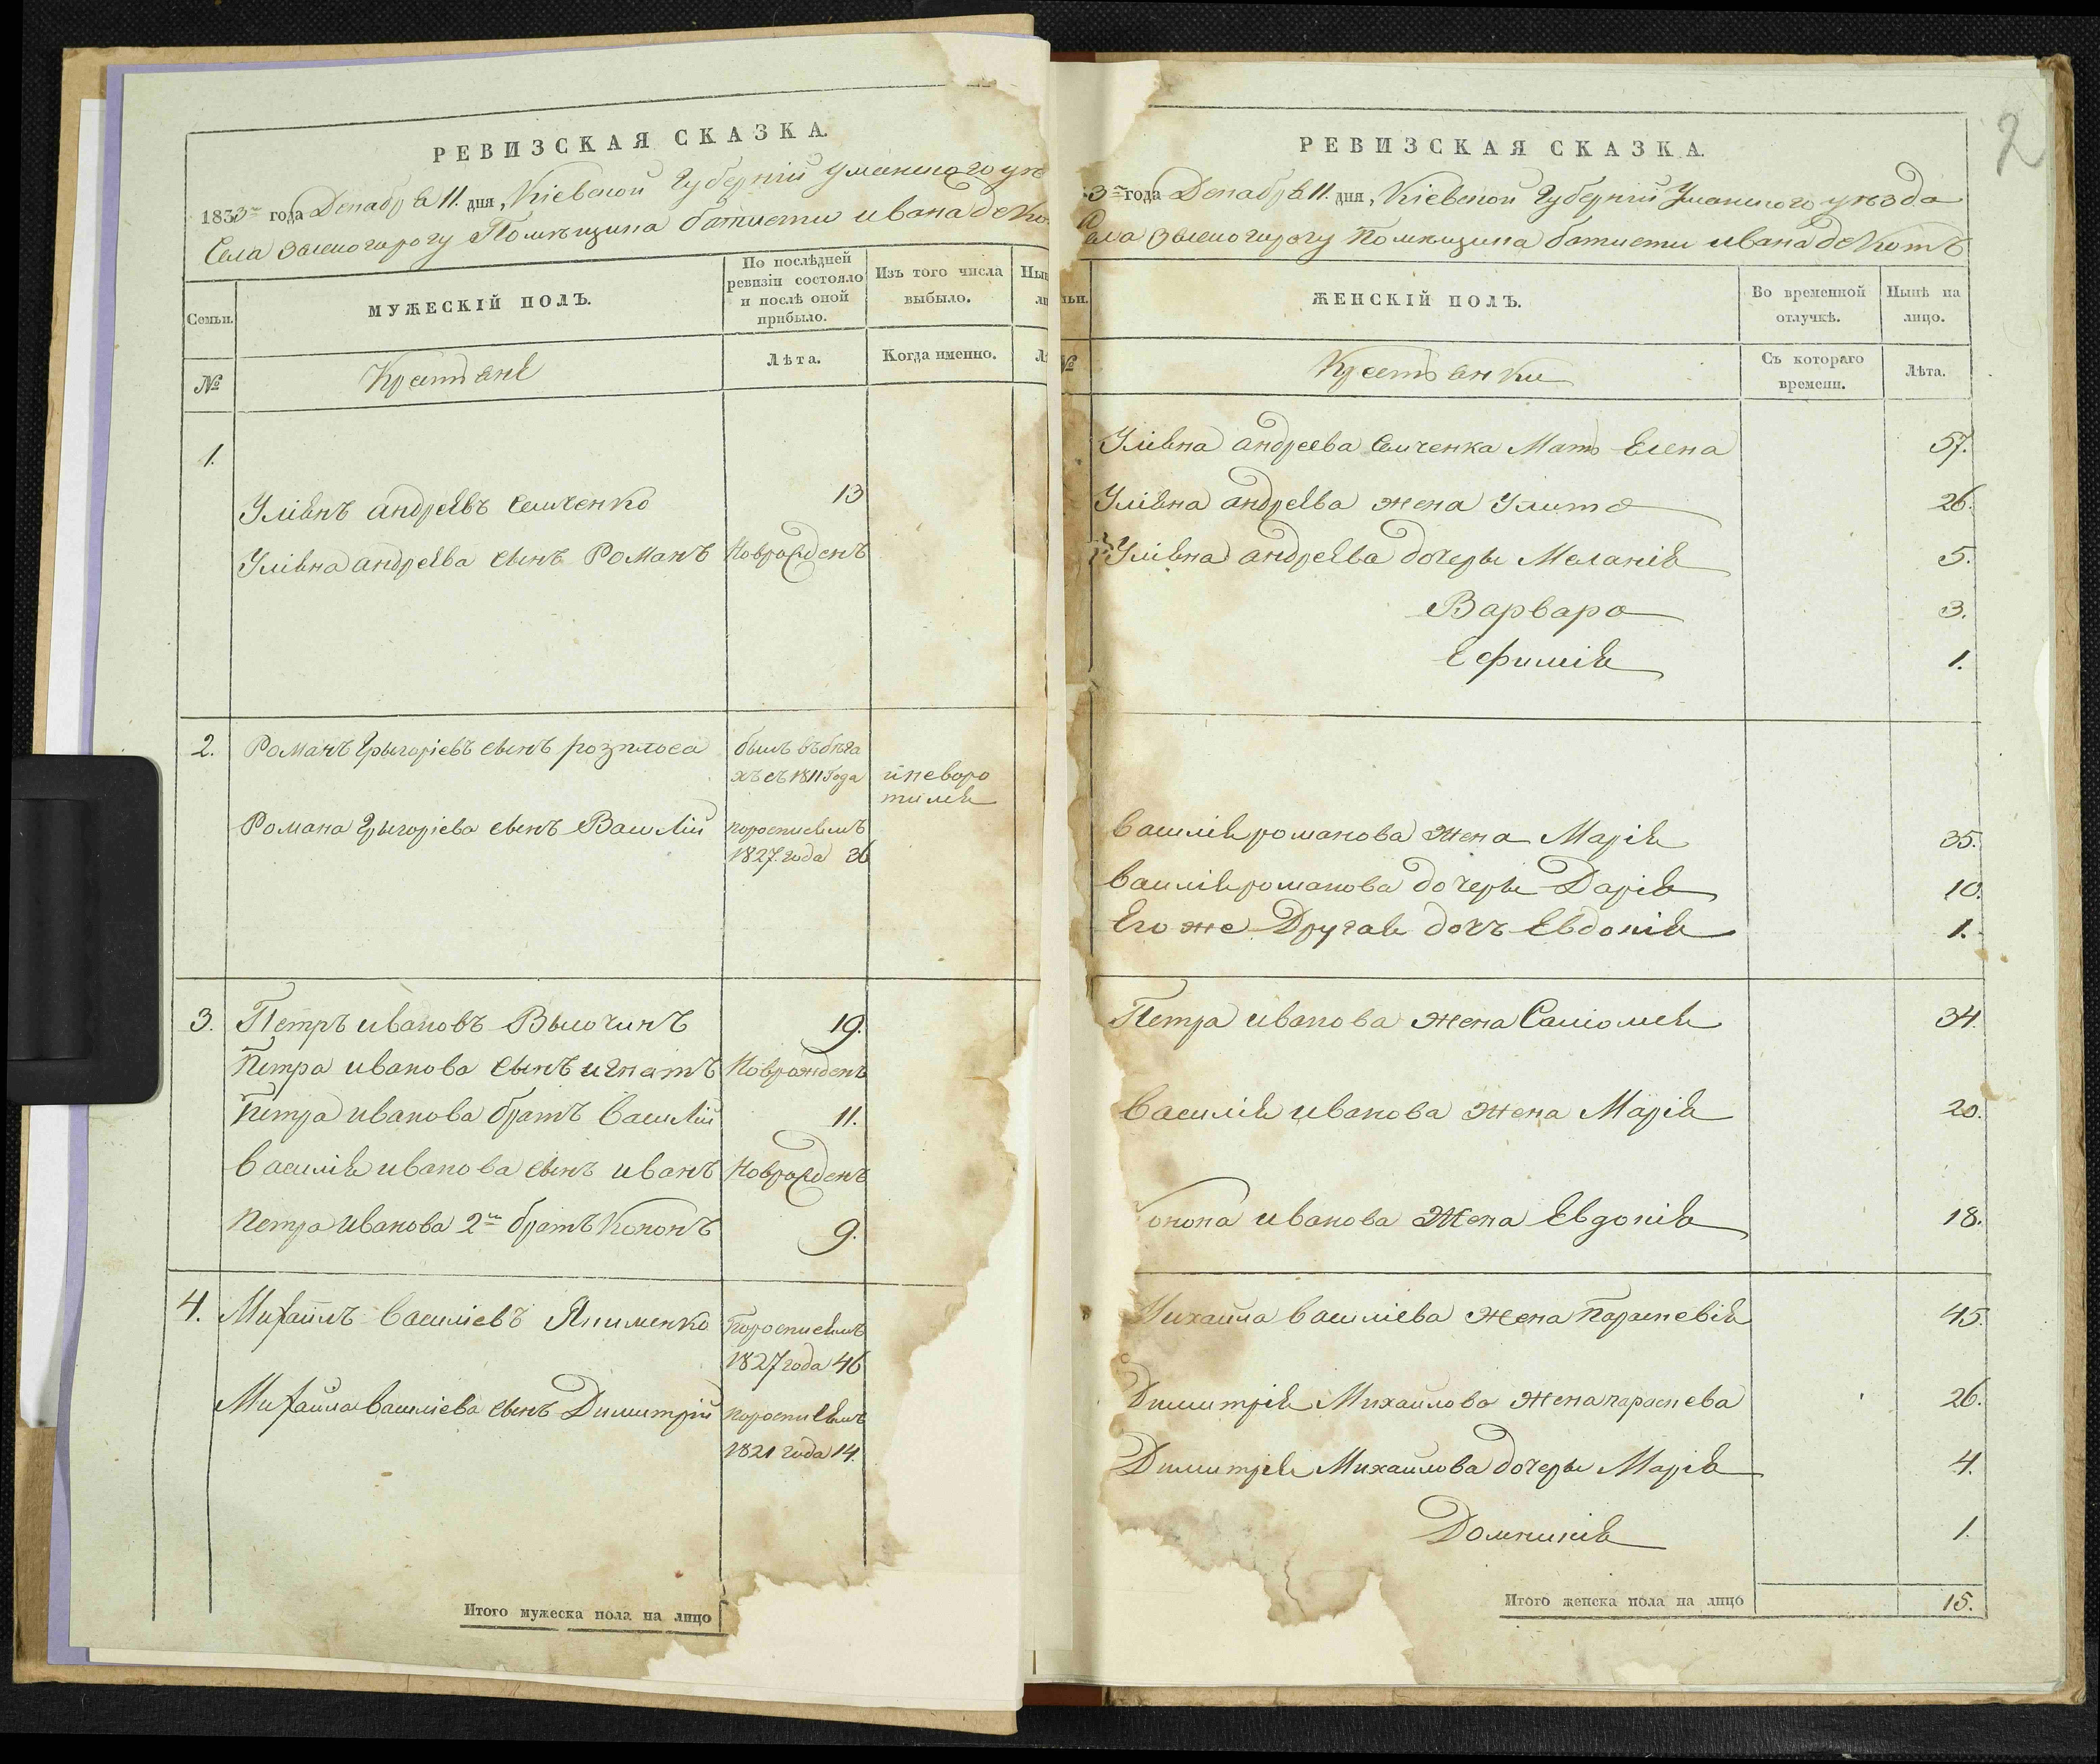 РЕВИЗСКАЯ СКАЗКА.
1833го года Декабря 11. дня, Кіевской Губерніи Уманского уѣ
Села Зеленогорогу Помѣщика батисти ивана де
Семьи.
МУЖЕСКІЙ ПОЛЪ.
По послѣдней ревизіи состояло и послѣ оной прибыло.
Изъ того числа выбыло.
№
Крестьяне
Лѣта.
Когда именно.
1.
Улiянъ андреевъ Семченко 13
Улiяна андреева сынъ Романъ Новрожденъ
2. Романъ Грыгоріевъ сынъ розплоса былъ въ бѣга
хъ съ 1811 Года и неворо
тился
Романа Грыгоріева сынъ Василій прописнымъ
1827. года 36
3. Петръ ивановъ Вылочинъ 19.
Петра иванова сынъ игнатъ Новрожденъ
Петра иванова братъ Василій 11.
Василія иванова сынъ иванъ Новрожденъ
Петра Иванова 2й братъ Кононъ 9.
4. Михаилъ Василіевъ Якименко
1827 года 46
Михаила Василіева сынъ Димитрій
1821 года 14.
Итого мужеска пола на лицо
2
РЕВИЗСКАЯ СКАЗКА.
3го года Декабря 11. дня, Кіевской Губерніи Уманского уѣзда
Села Зеленогорогу Помѣщика батисти ивана де Котъ
ьи.
ЖЕНСКІЙ ПОЛЪ.
Во временной отлучкѣ.
Нынѣ на лицо.
№
Крестьянки
Съ котораго времени.
Лѣта.
Улiяна андреева Семченка Мать Елена 57.
Улiяна андреева жена Улита 26.
Улiяна андреева дочеры Меланія 5.
Варвара 3.
Ефимія 1.
Василія романова жена Марія 35.
Василія романова дочеры Дарія 10.
Его же Другая дочъ Евдокія 1.
Петра иванова жена Саломея 34.
Василія иванова жена Марія 20.
онона иванова жена Евдокія 18.
Михаила василіева жена Параскевія 45.
Димитрія Михаилова жена параскева 26.
Димитрія Михаилова дочеры Марія 4.
Домникія 1.
Итого женска пола на лицо 15.